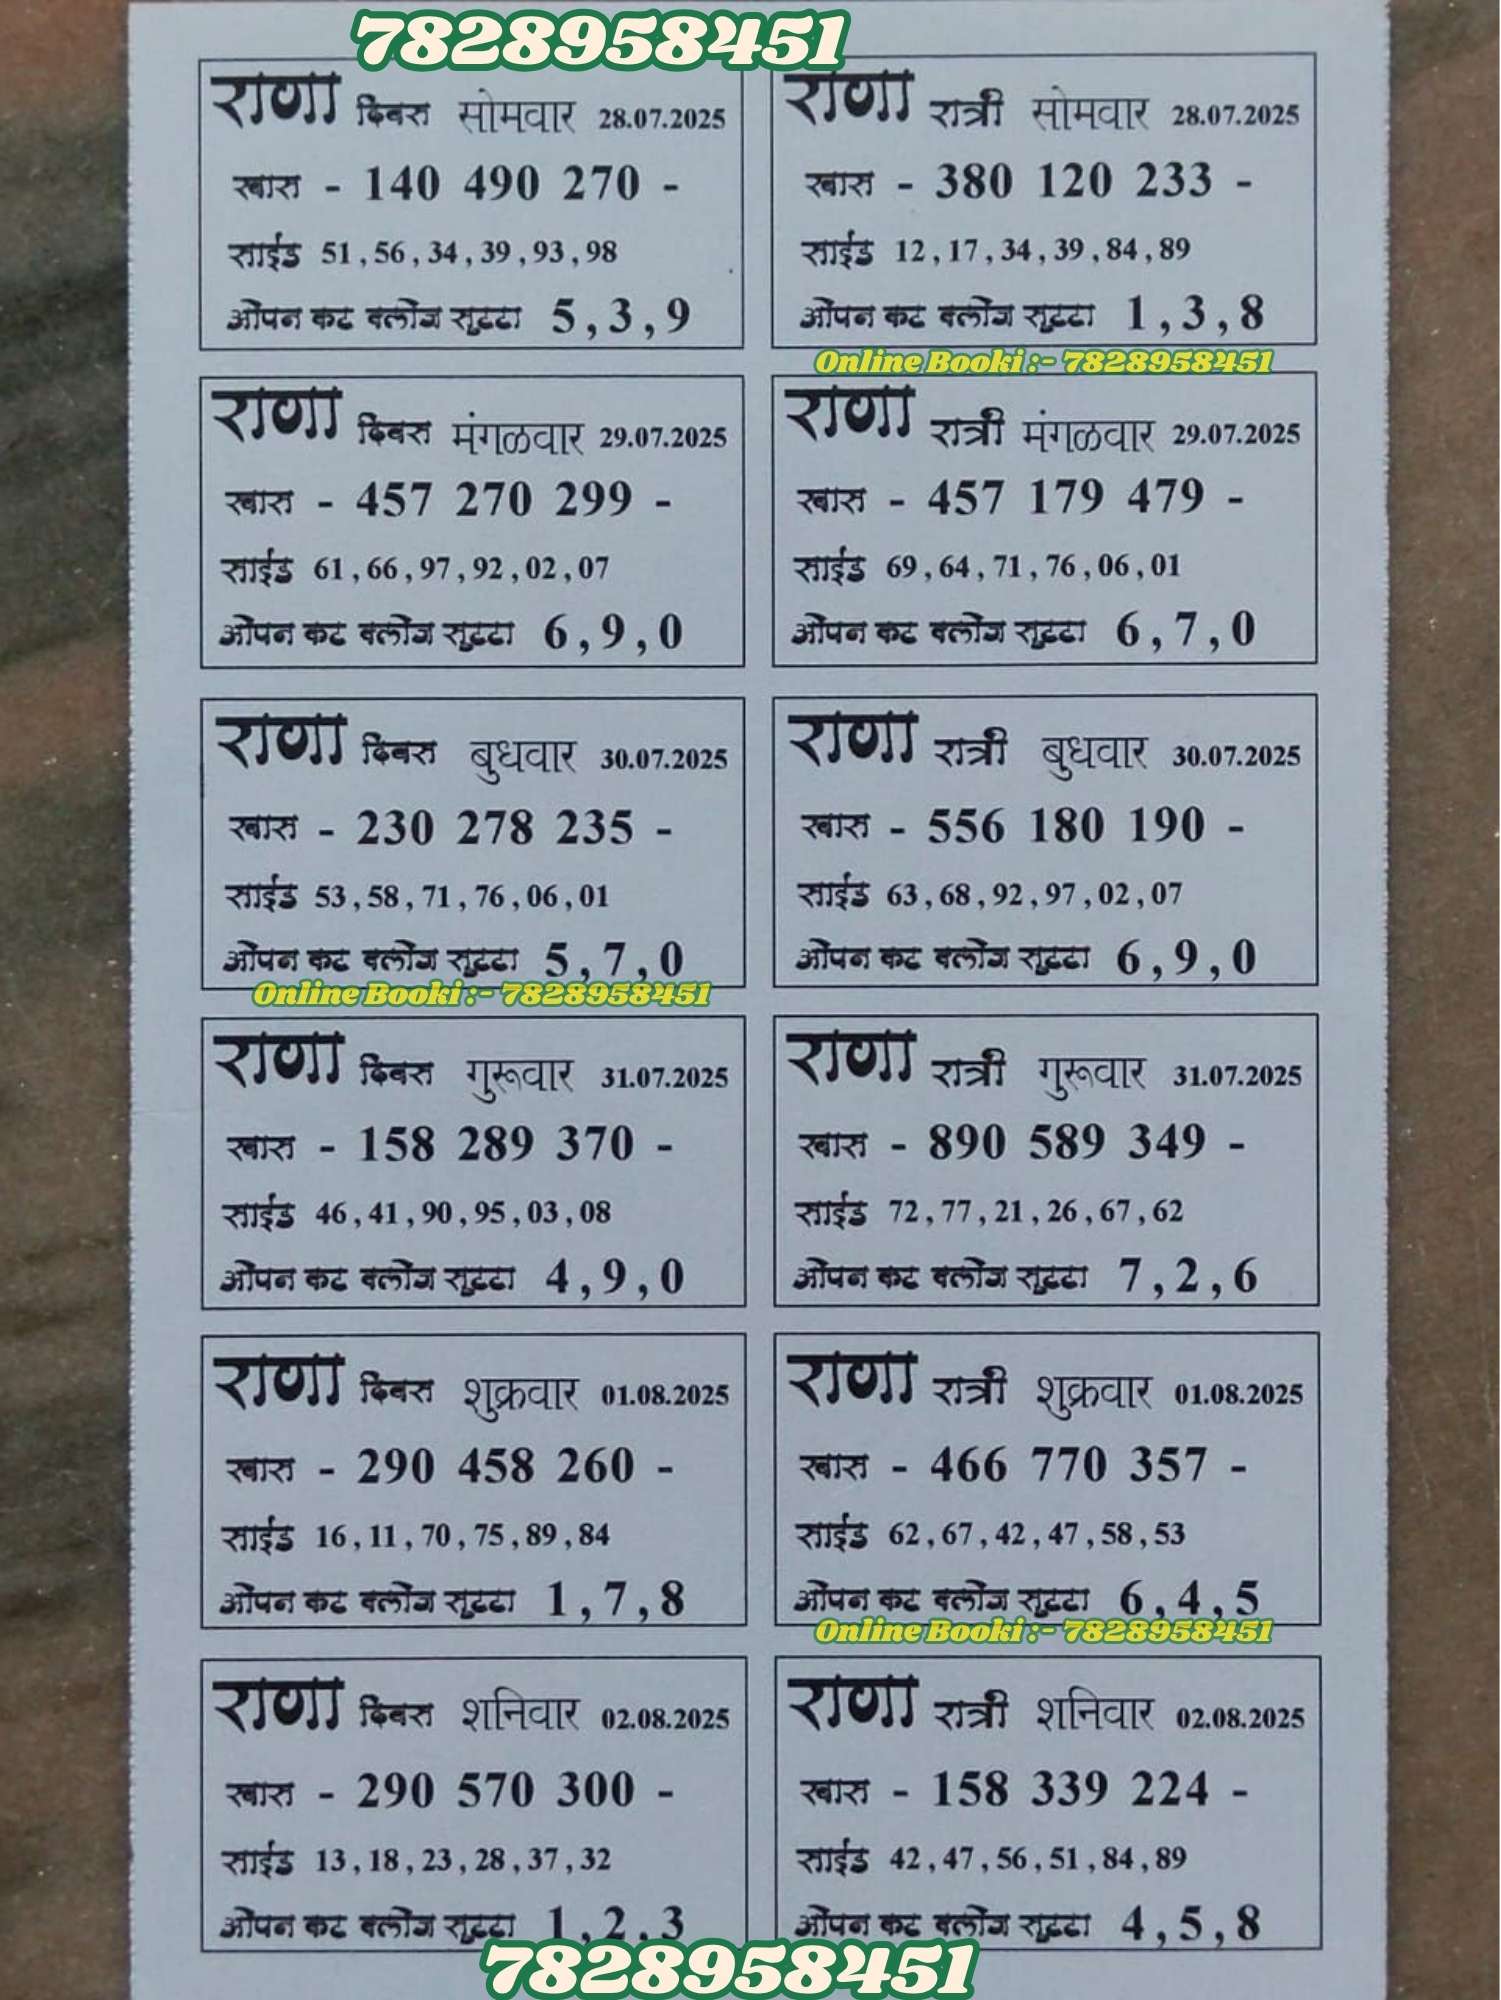 7828958451
राणा दिवस सोमवार 28.07.2025
खास - 140 490 270 -
साईड 51 , 56 , 34 , 39 , 93 , 98
ओपन कट क्लोज सुटटा 5 , 3 , 9
राणा रात्री सोमवार 28.07.2025
खास - 380 120 233 -
साईड 12 , 17 , 34 , 39 , 84 , 89
ओपन कट क्लोज सुटटा 1 , 3 , 8
Online Booki :- 7828958451
राणा दिवस मंगळवार 29.07.2025
खास - 457 270 299 -
साईड 61 , 66 , 97 , 92 , 02 , 07
ओपन कट क्लोज सुटटा 6 , 9 , 0
राणा रात्री मंगळवार 29.07.2025
खास - 457 179 479 -
साईड 69 , 64 , 71 , 76 , 06 , 01
ओपन कट क्लोज सुटटा 6 , 7 , 0
राणा दिवस बुधवार 30.07.2025
खास - 230 278 235 -
साईड 53 , 58 , 71 , 76 , 06 , 01
ओपन कट क्लोज सुटटा 5 , 7 , 0
Online Booki :- 7828958451
राणा रात्री बुधवार 30.07.2025
खास - 556 180 190 -
साईड 63 , 68 , 92 , 97 , 02 , 07
ओपन कट क्लोज सुटटा 6 , 9 , 0
राणा दिवस गुरूवार 31.07.2025
खास - 158 289 370 -
साईड 46 , 41 , 90 , 95 , 03 , 08
ओपन कट क्लोज सुटटा 4 , 9 , 0
राणा रात्री गुरूवार 31.07.2025
खास - 890 589 349 -
साईड 72 , 77 , 21 , 26 , 67 , 62
ओपन कट क्लोज सुटटा 7 , 2 , 6
राणा दिवस शुक्रवार 01.08.2025
खास - 290 458 260 -
साईड 16 , 11 , 70 , 75 , 89 , 84
ओपन कट क्लोज सुटटा 1 , 7 , 8
राणा रात्री शुक्रवार 01.08.2025
खास - 466 770 357 -
साईड 62 , 67 , 42 , 47 , 58 , 53
ओपन कट क्लोज सुटटा 6 , 4 , 5
Online Booki :- 7828958451
राणा दिवस शनिवार 02.08.2025
खास - 290 570 300 -
साईड 13 , 18 , 23 , 28 , 37 , 32
ओपन कट क्लोज सुटटा 1 , 2 , 3
राणा रात्री शनिवार 02.08.2025
खास - 158 339 224 -
साईड 42 , 47 , 56 , 51 , 84 , 89
ओपन कट क्लोज सुटटा 4 , 5 , 8
7828958451